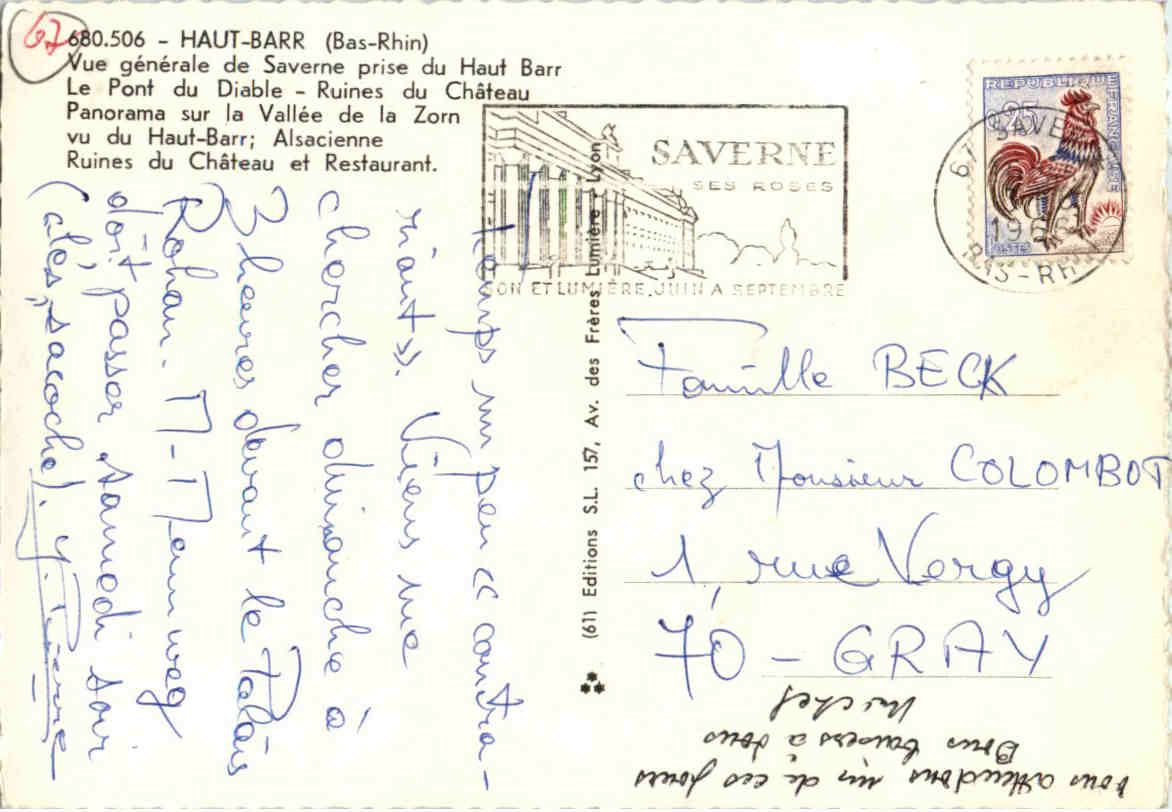 67
680.506 - HAUT-BARR (Bas-Rhin)
Vue générale de Saverne prise du Haut Barr
Le Pont du Diable - Ruines du Château
Panorama sur la Vallée de la Zorn
vu du Haut-Barr; Alsacienne
Ruines du Château et Restaurant.
SAVERNE
SES ROSES
SON ET LUMIÈRE, JUIN A SEPTEMBRE
REPUBLIQUE FRANÇAISE
0,25
POSTES
67 SAVERNE
BAS-RHIN
temps un peu « contra-
riant ». Viens me
chercher dimanche à
3 heures devant le Palais
Rohan. M-T Mennweg
doit passer samedi soir
(clés, sacoche). Y. Pierre
(611) Editions S.L. 157, Av. des Frères Lumière - Lyon
Famille BECK
chez Monsieur COLOMBOT
1, rue Vergy
70 - GRAY
vous attendons un de ces jours
Bons baisers à tous
Michel